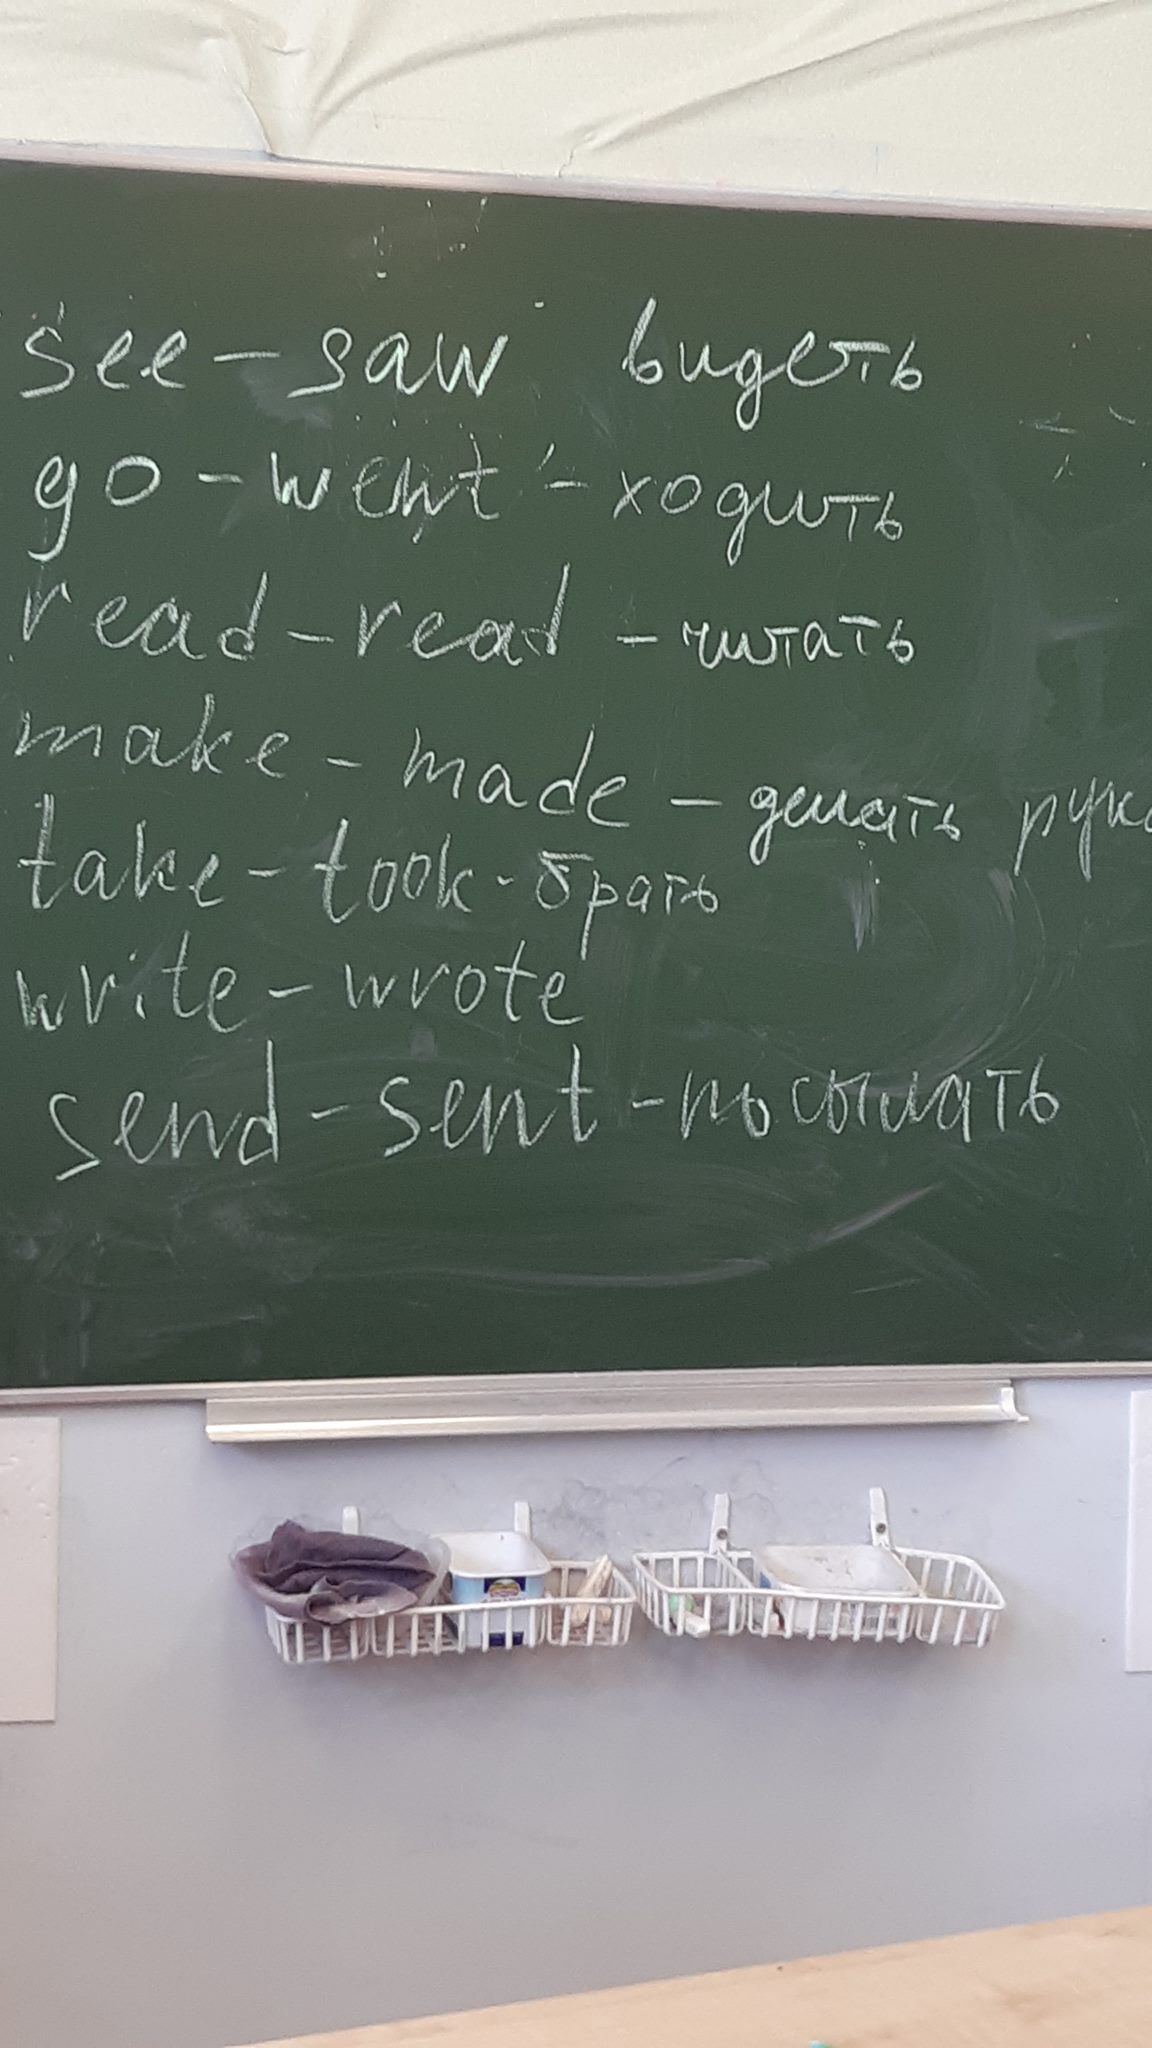 see - saw видеть
go - went - ходить
read - read - читать
make - made - делать
take - took - брать
write - wrote
send - sent - посылать